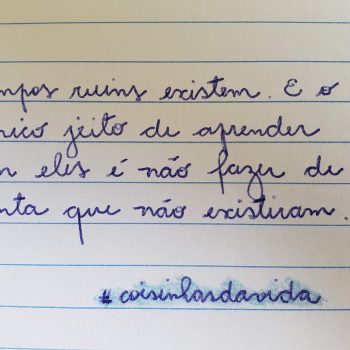 mpos ruins existem. E o
nico jeito de aprender
m eles é não fazer de
nta que não existiram.
#coisinhasdavida